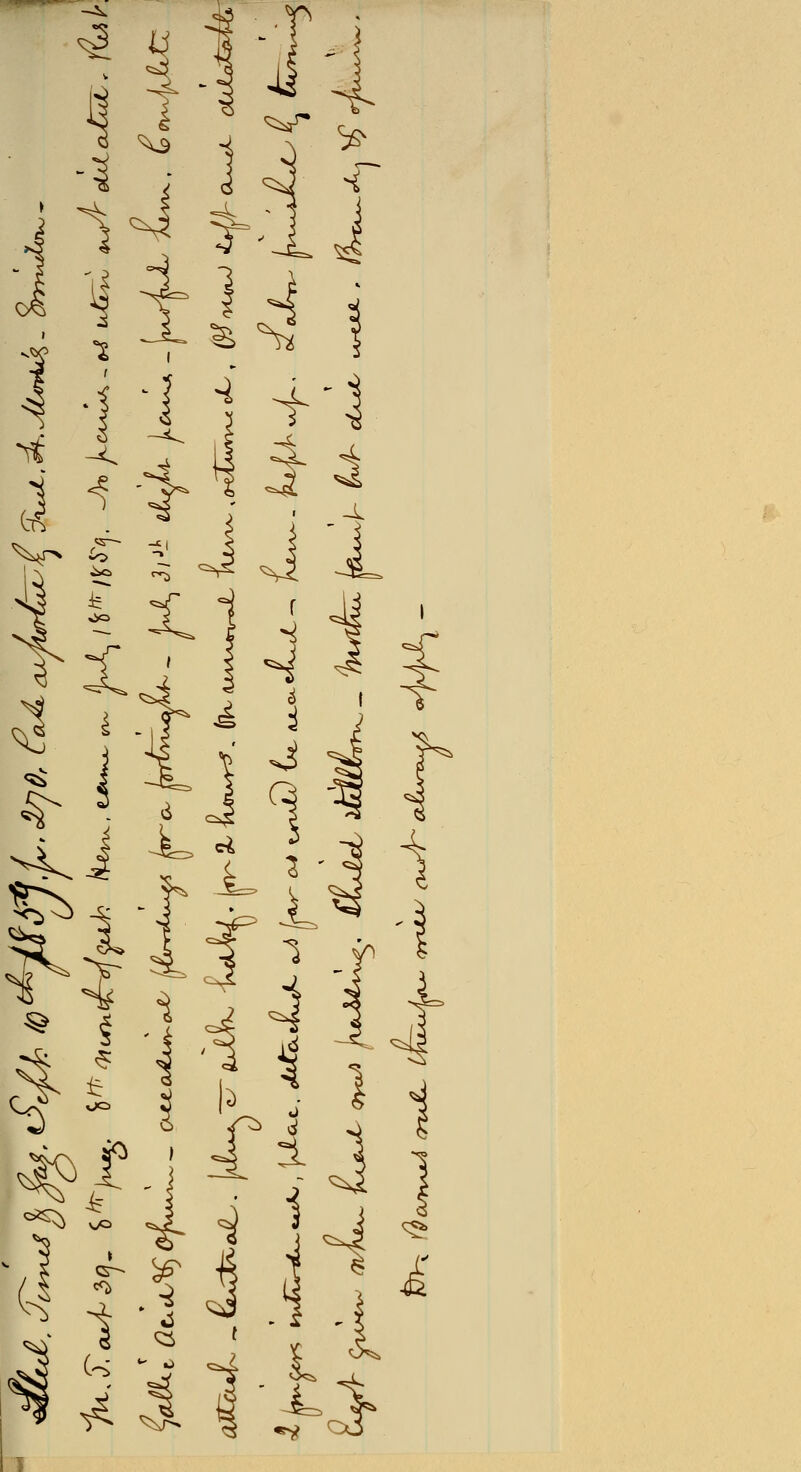 Med. Times & Gaz. Sept. 10th 1859. p. 270. Case reported by Fred. H. Morris. Swindon -
M. T. aet 39 - 8th preg. 8th month of gest. Hem. came on July 18th 1859. No pains - os uteri not dilated. Rest.
Gallic Acid & Opium - occasional floodings for a fortnight - July 31st slight pains - profuse hem. Complete
attach - Central. plug c̄ silk hdkf. for 2 hours. On removal hem. returned. Os now soft and dilatable
2 fingers introduced, plac. detached as far as could be reached - hem. kept up. Labor finished by turning
Ergot given when head was passing. Child stillborn - Mother faint but did well. Brandy & opium.
Dr. Barnes rule therefore will not always apply -